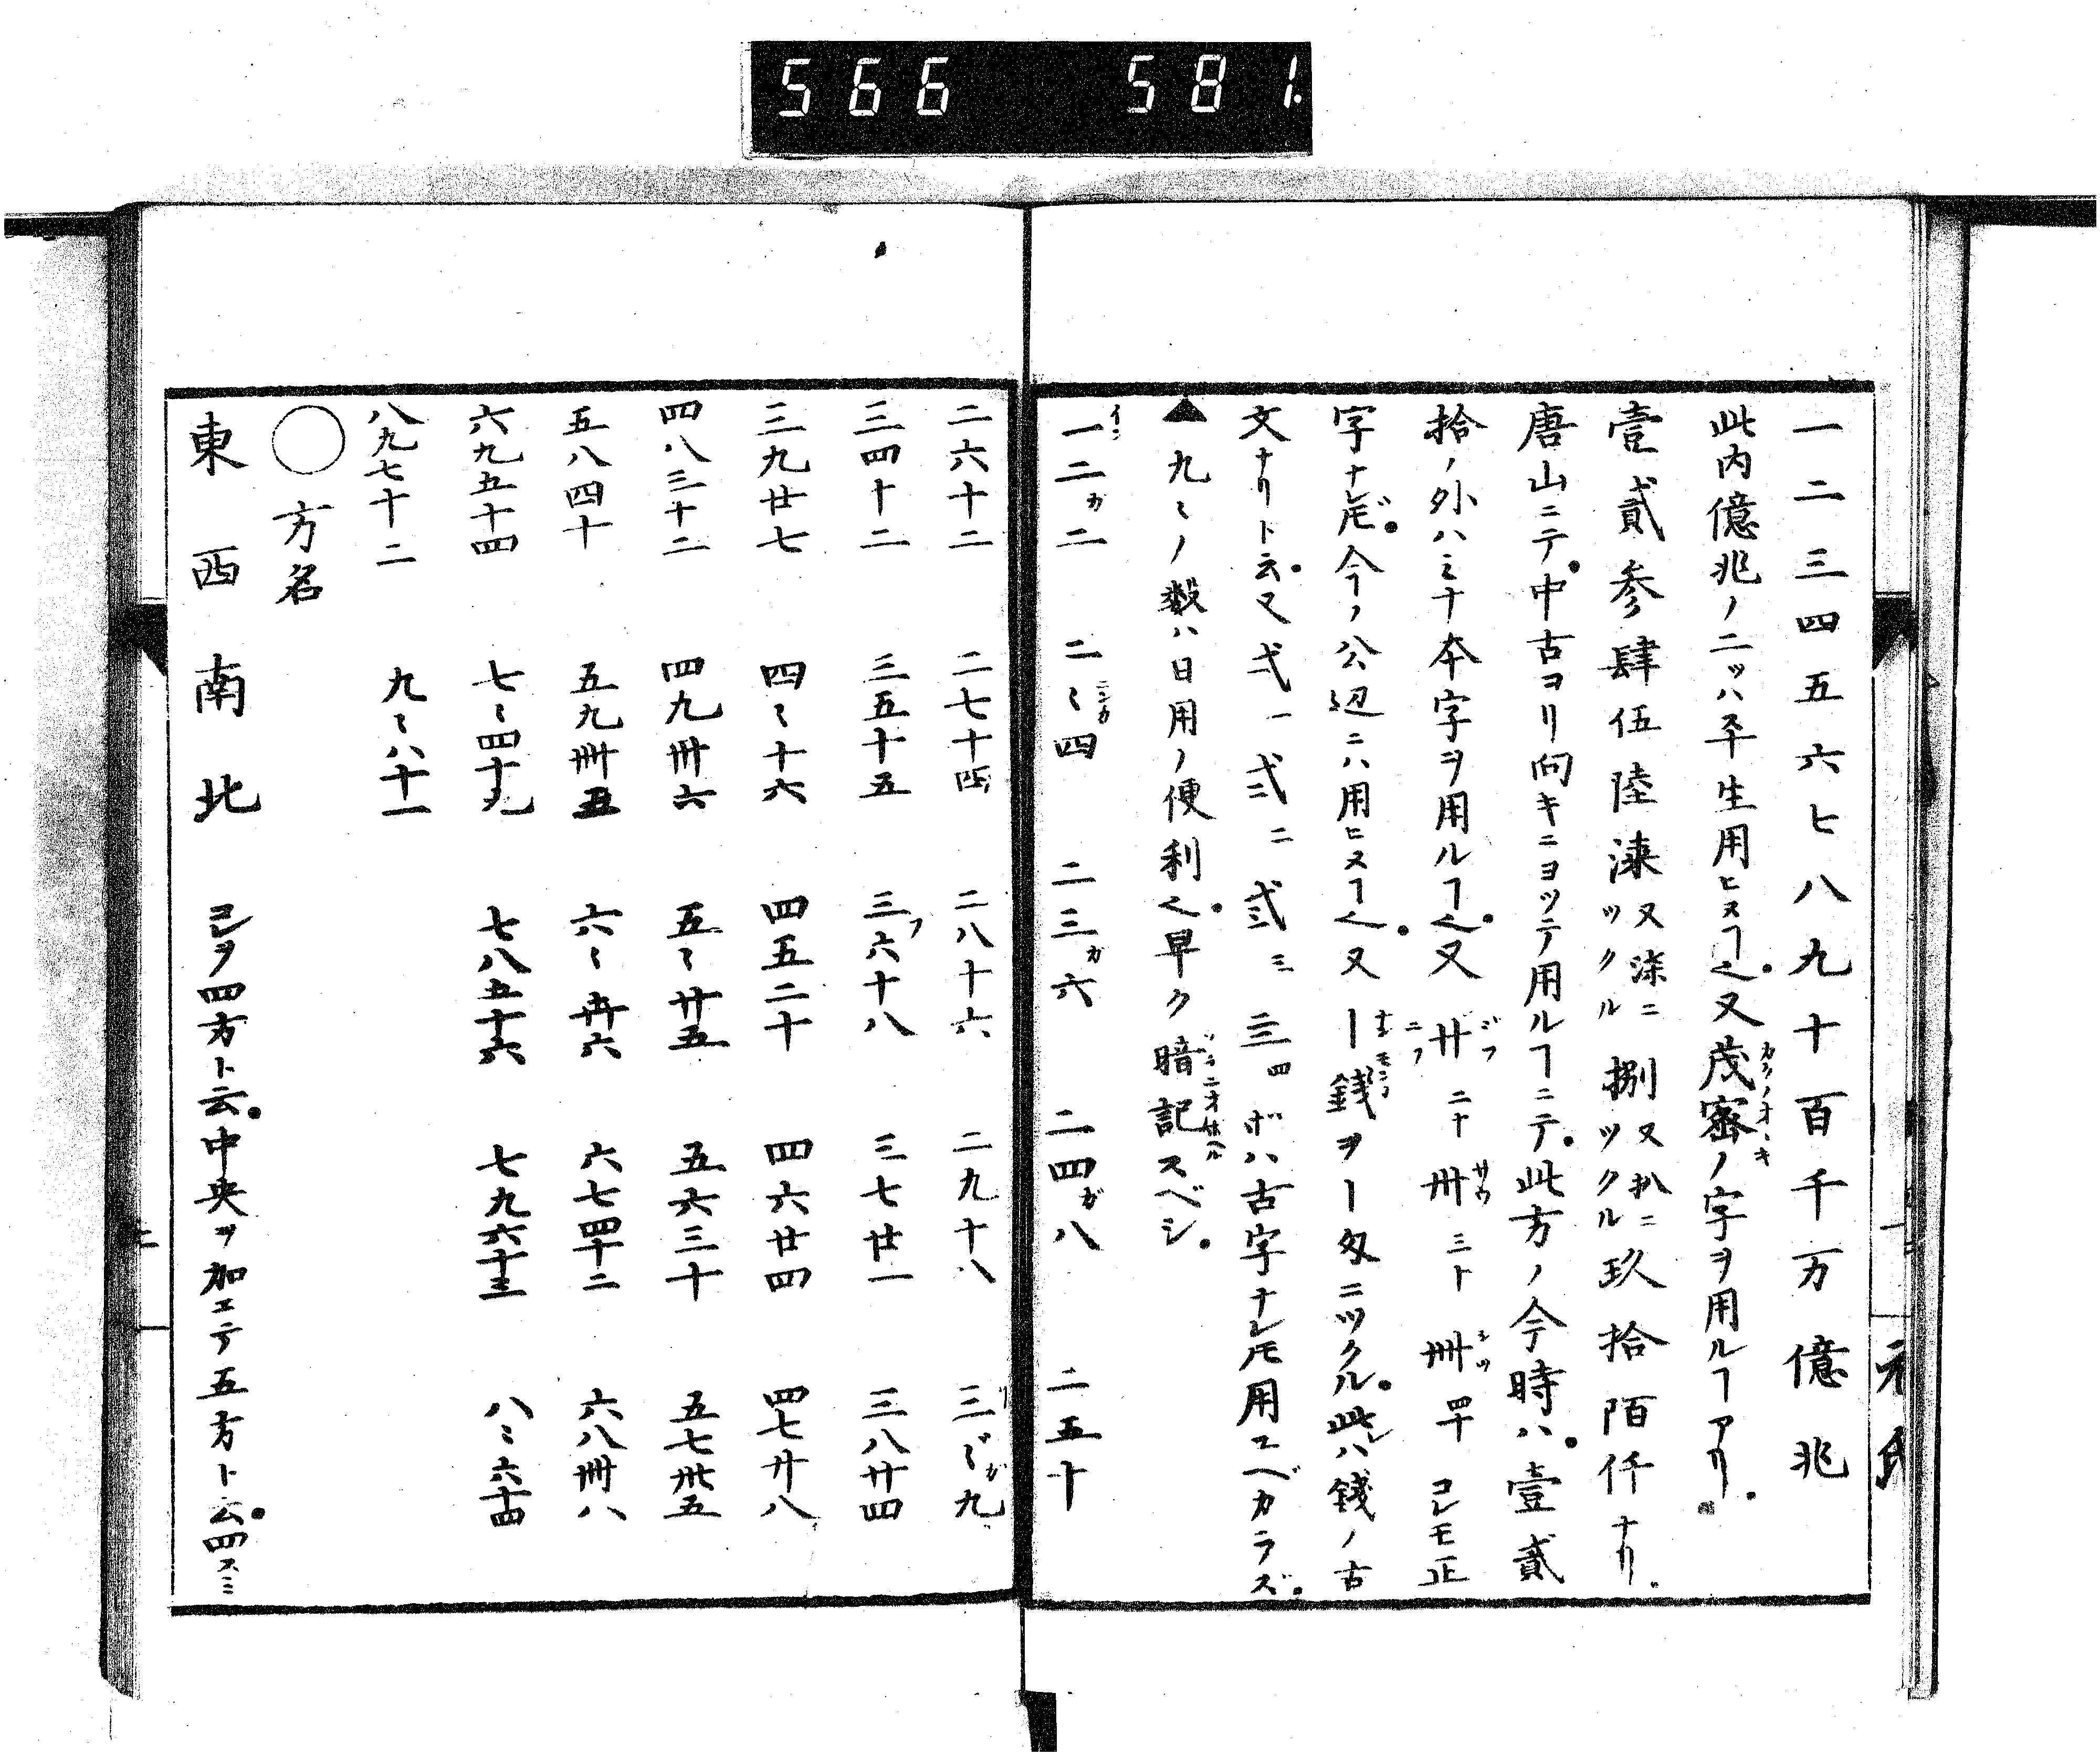 566 581.
一二三四五六七八九十百千万億兆
此内億兆ノ二ツハ平生用ヒヌヿ也。又茂密ノ字ヲ用ルヿアリ。
壹貳参肆伍陸漆又柒ニツクル捌又扒ニツクル玖拾陌仟ナリ.
唐山ニテ。中古ヨリ向キニヨツテ用ルヿニテ。此方ノ今時ハ。壹貳
拾ノ外ハミナ本字ヲ用ルヿ也。又廿二十卅三十卌四十コレモ正
字ナレ𪜈。今ノ公辺ニハ用ヒヌヿ也。又一銭ヲ一匁ニツクル。此レハ銭ノ古
文ナリト云。又弌一弍二弎三亖四ボハ古字ナレ𪜈用ユベカラズ。
▲九〻ノ数ハ日用ノ便利也。早ク暗記スベシ。
一二ガ二 二〻四 二三ガ六 二四ガ八 二五十
二六十二 二七十四 二八十六 二九十八 三〻ガ九
三四十二 三五十五 三六十八 三七廿一 三八廿四
三九廿七 四〻十六 四五二十 四六廿四 四七廿八
四八三十二 四九卅六 五〻廿五 五六三十 五七卅五
五八四十 五九卌五 六〻卅六 六七四十二 六八卌八
六九五十四 七〻四十九 七八五十六 七九六十三 八〻六十四
八九七十二 九〻八十一
○方名
東西南北 コレヲ四方ト云。中央ヲ加エテ五方ト云。四スミ